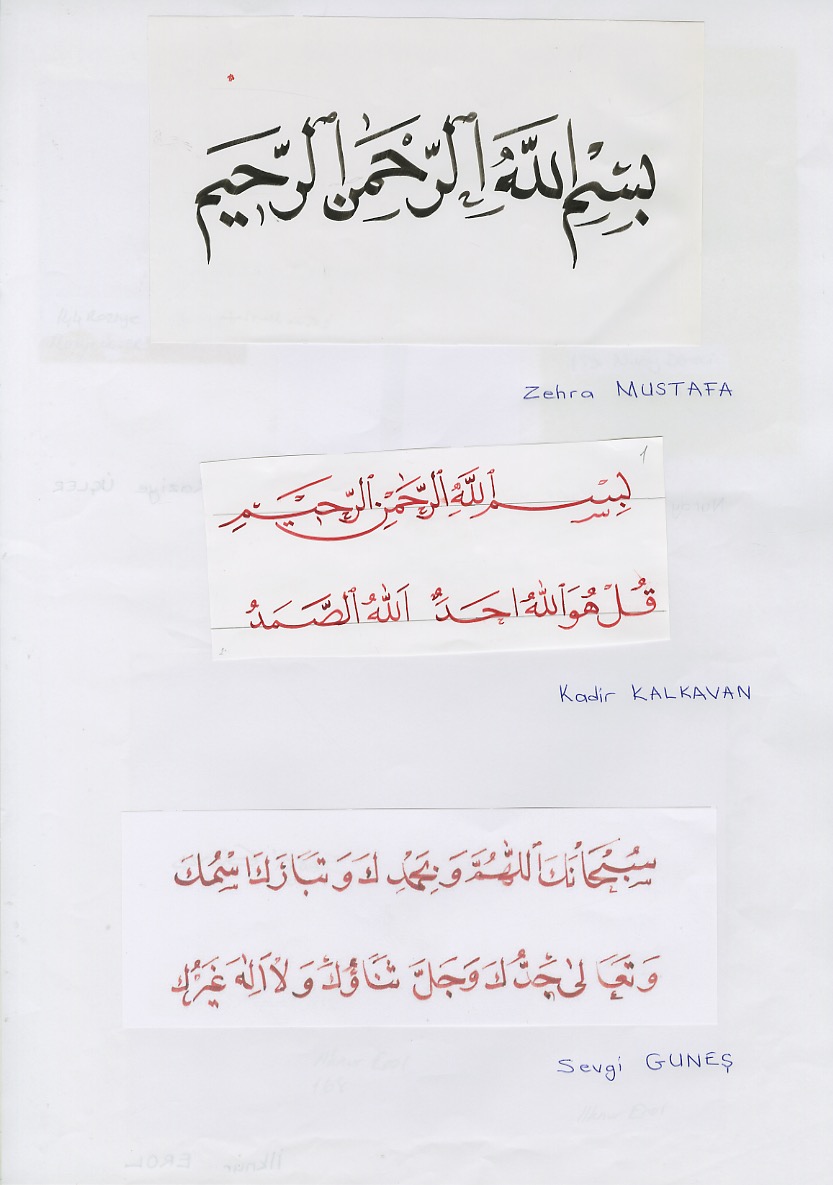 بِسْمِ اللَّهِ الرَّحْمَنِ الرَّحِيمِ
Zehra MUSTAFA
1
بِسْمِ اللَّهِ الرَّحْمَنِ الرَّحِيمِ
قُلْ هُوَ اللَّهُ اَحَدٌ اَللَّهُ الصَّمَدُ
Kadir KALKAVAN
سُبْحَانَكَ اللَّهُمَّ وَ بِحَمْدِكَ وَ تَبَارَكَ اسْمُكَ
وَ تَعَالَى جَدُّكَ وَ جَلَّ ثَنَاؤُكَ وَ لَا اِلَهَ غَيْرُكَ
Sevgi GUNEŞ